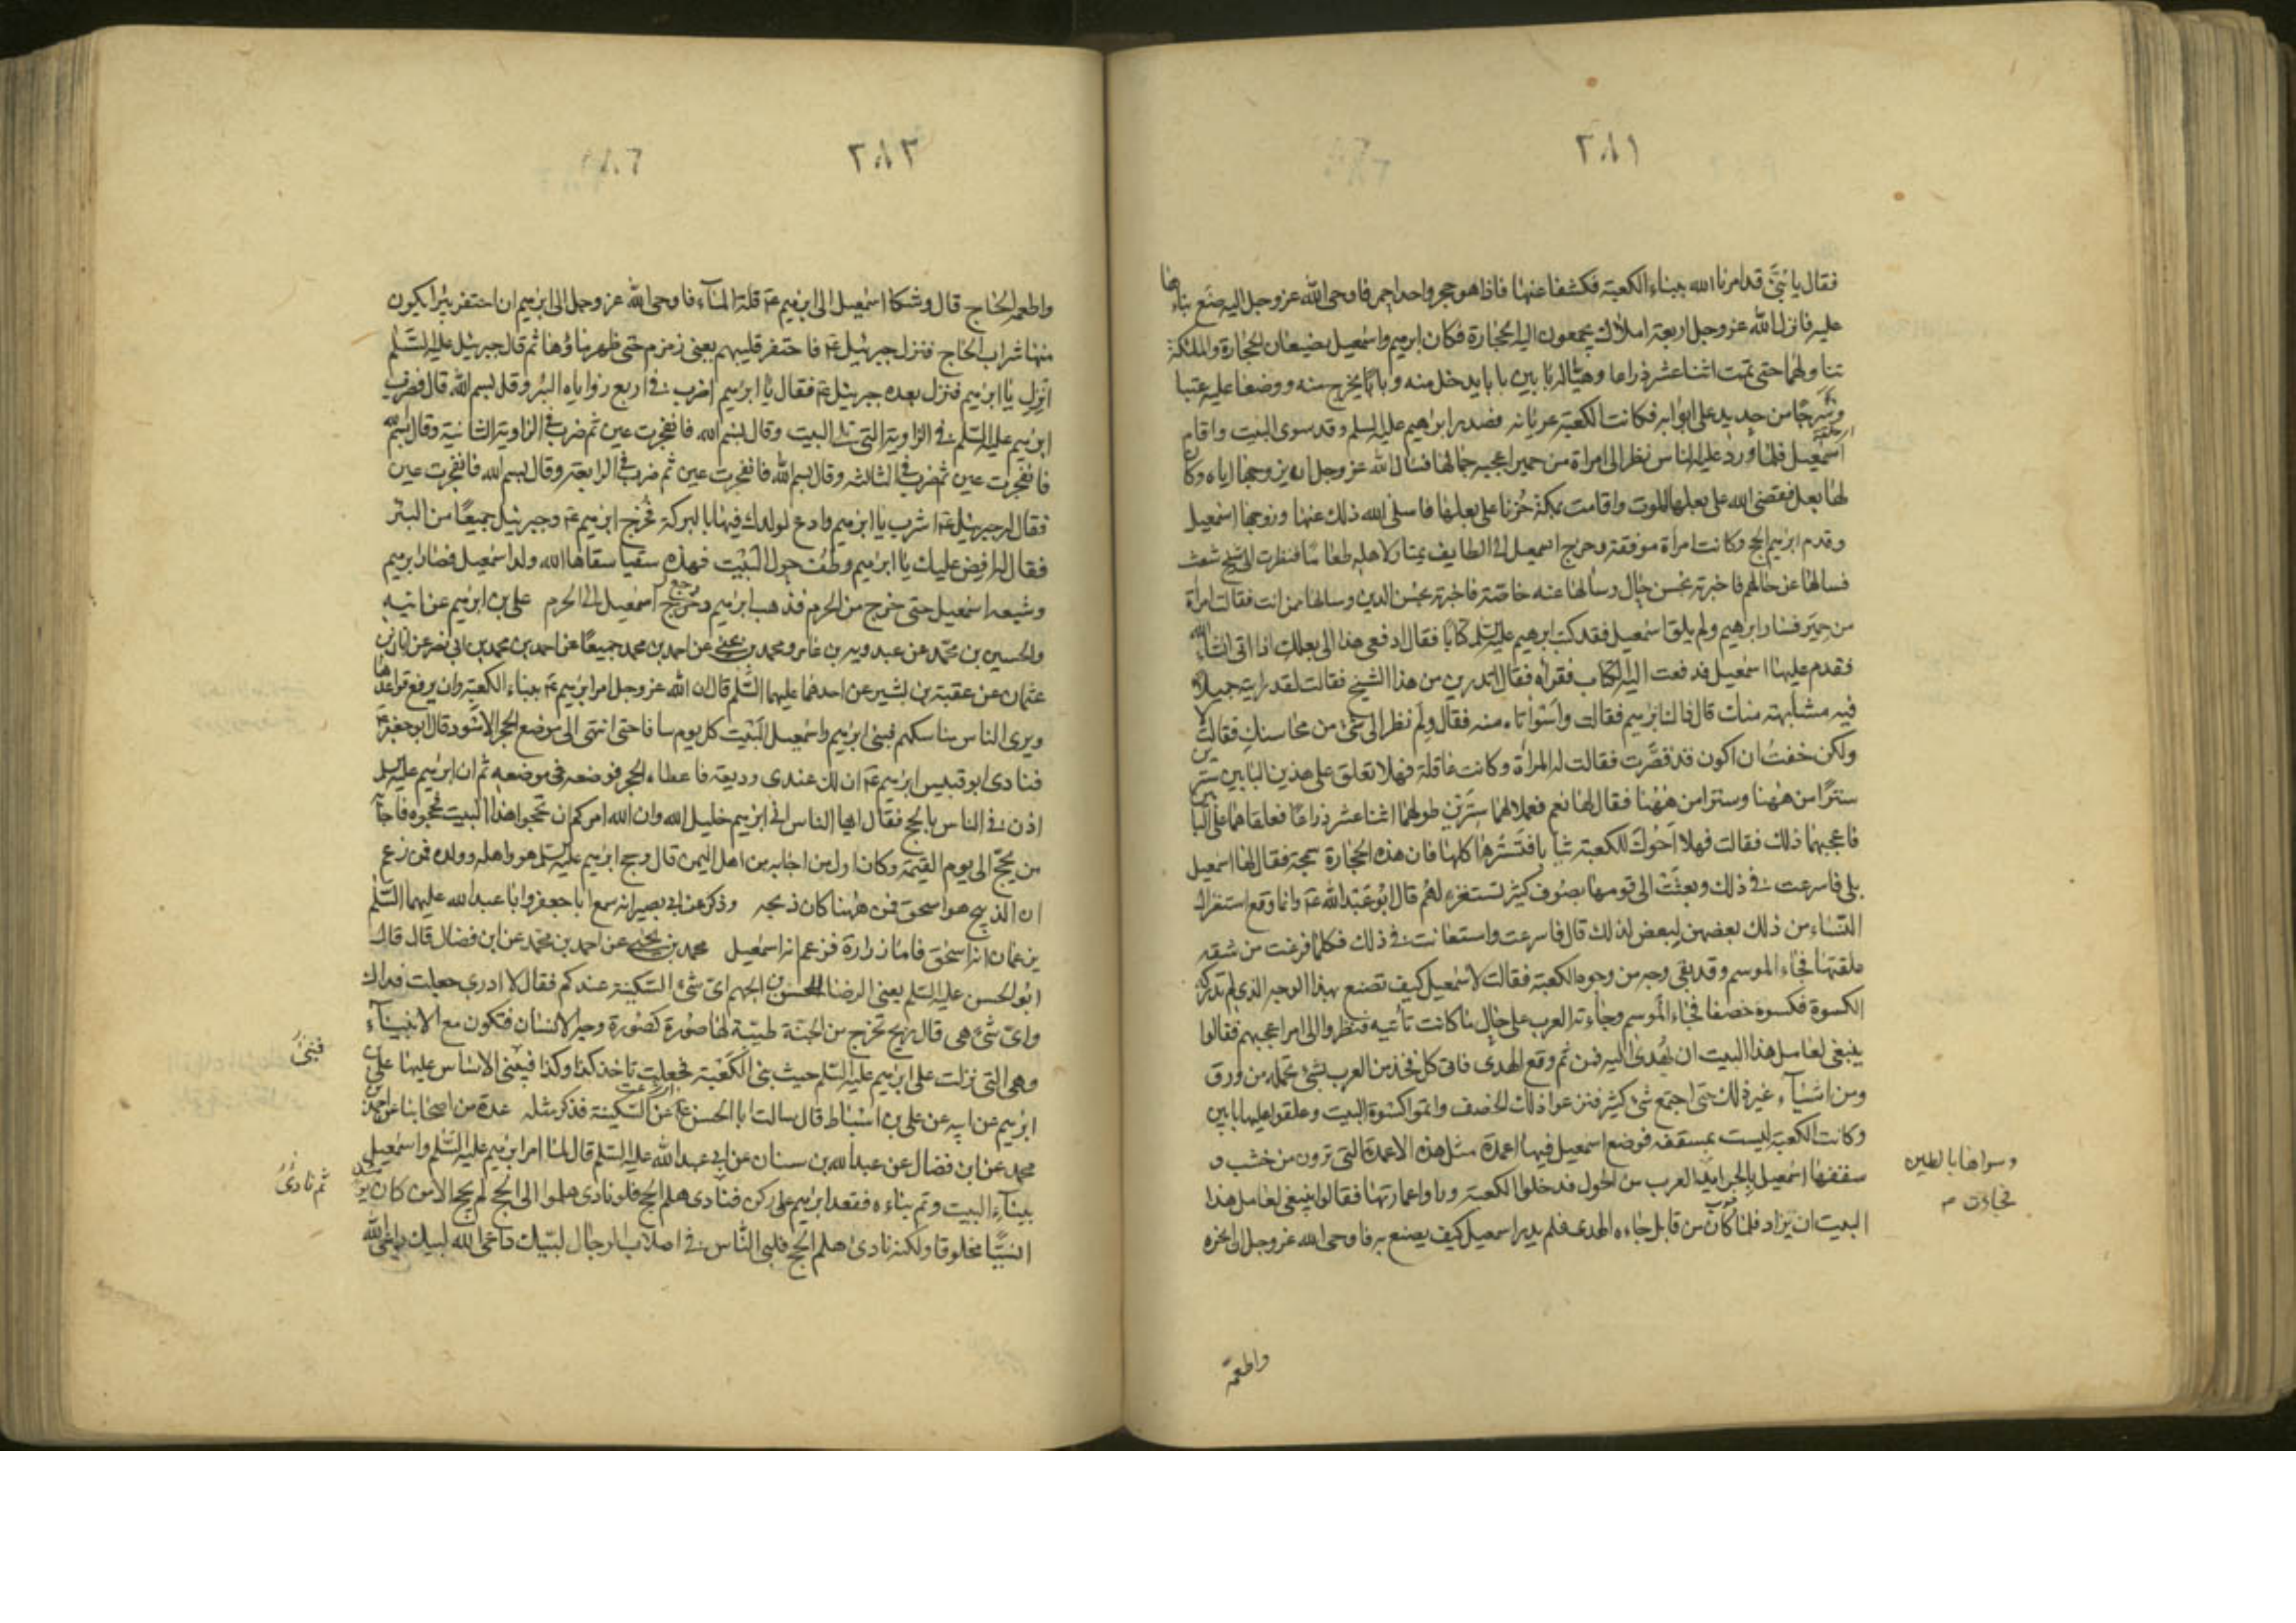 ٢٨١
فقال يا بني قد امرنا الله ببناء الكعبة فكشفا عنها فاذا هو حجر واحد احمر فاوحى الله عز وجل اليه ضع بناءها
عليه فانزل الله عز وجل اربعة املاك يجمعون اليه الحجارة فكان ابرهيم واسمعيل يضيعان الحجارة والملئكة
تناولهما حتى تمت اثنا عشر ذراعا وهيئا له بابين بابا يدخل منه وبابا يخرج منه ووضعا عليه عتبا
وشرجا من حديد على ابوابه فكانت الكعبة عريانة فصدر ابرهيم عليه السلم وقد سوى البيت واقام
اسمعيل فلما ورد عليه الناس نظر الى امراة من حمير اعجبه جمالها فسال الله عز وجل ان يزوجها اياه وكان
لها بعل فقضى الله على بعلها الموت واقامت بمكة حزنا على بعلها فاسلى الله ذلك عنها وزوجها اسمعيل
وقدم ابرهيم الحج وكانت امراة موفقة وخرج اسمعيل الى الطايف يمتار لاهله طعاما فنظرت الى شيخ شعث
فسالها عن حالهم فاخبرته بحسن حال وسالها عنه خاصة فاخبرته بحسن الدين وسالها ممن انت فقالت امراة
من حمير فسار ابرهيم ولم يلق اسمعيل فقد كتب ابرهيم عليه السلم كتابا فقال ادفعي هذا الى بعلك اذا اتى انشاء الله
فقدم عليها اسمعيل فدفعت اليه الكتاب فقراه فقال اتدرين من هذا الشيخ فقالت لقد رايته جميلا
فيه مشابهة منك قال ذاك ابرهيم فقالت واسواتاه منه فقال ولم نظر الى شيء من محاسنك فقالت لا
ولكن خفت ان اكون قد قصرت فقالت له المراة وكانت عاقلة فهلا تعلق على هذين البابين سترين
سترا من ههنا وسترا من ههنا فقال لها نعم فعملا لهما سترين طولهما اثنا عشر ذراعا فعلقاهما على البابين
فاعجبهما ذلك فقالت فهلا احوك للكعبة ثيابا فتسترها كلها فان هذه الحجارة سمجة فقال لها اسمعيل
بلى فاسرعت في ذلك وبعثت الى قومها بصوف كثير تستغزلهم قال ابو عبد الله ع وانما وقع استغزال
النساء من ذلك بعضهن لبعض لذلك قال فاسرعت واستعانت في ذلك فكلما فرغت من شقة
علقتها فجاء الموسم وقد بقي وجه من وجوه الكعبة فقالت لاسمعيل كيف تصنع بهذا الوجه الذي لم تدركه
الكسوة فكسوه خصفا فجاء الموسم وجاءته العرب على حال ما كانت تاتيه فنظروا الى امر اعجبهم فقالوا
ينبغي لعامل هذا البيت ان يهدى اليه فمن ثم وقع الهدي فاتى كل فخذ من العرب بشيء تحمله من ورق
ومن اشياء غير ذلك حتى اجتمع شيء كثير فنزعوا ذلك الخصف واتموا كسوة البيت وعلقوا عليها بابين
وكانت الكعبة ليست بمسقفة فوضع اسمعيل فيها اعمدة مثل هذه الاعمدة التي ترون من خشب و
سقفها اسمعيل بالجرايد العرب من الحول فدخلوا الكعبة وراوا عمارتها فقالوا ينبغي لعامل هذا
البيت ان يزاد فلما كان من قابل جاءه الهدي فلم يدر اسمعيل كيف يصنع به فاوحى الله عز وجل اليه انحره
وسواها بالطين
فجاءت
واطعمه
٢٨٢
واطعمه الحاج قال وشكا اسمعيل الى ابرهيم ع قلة الماء فاوحى الله عز وجل الى ابرهيم ان احتفر بئرا يكون
منها شراب الحاج فنزل جبرئيل ع فاحتفر قليبهم يعني زمزم حتى ظهر ماؤها ثم قال جبرئيل عليه السلم
انزل يا ابرهيم فنزل بعده جبرئيل ع فقال يا ابرهيم اضرب في اربع زوايا البئر وقل بسم الله قال فضرب
ابرهيم عليه السلم في الزاوية التي تلي البيت وقال بسم الله فانفجرت عين ثم ضرب في الزاوية الثانية وقال بسم الله
فانفجرت عين ثم ضرب في الثالثة وقال بسم الله فانفجرت عين ثم ضرب في الرابعة وقال بسم الله فانفجرت عين
فقال له جبرئيل ع اشرب يا ابرهيم وادع لولدك فيها بالبركة فخرج ابرهيم ع وجبرئيل جميعا من البئر
فقال له افض عليك يا ابرهيم وطف حول البيت فهذه سقيا سقاها الله ولد اسمعيل فصار ابرهيم
وشيعه اسمعيل حتى خرج من الحرم فذهب ابرهيم ورجع اسمعيل الى الحرم علي بن ابرهيم عن ابيه
والحسين بن محمد عن عبدويه بن عامر ومحمد بن يحيى عن احمد بن محمد جميعا عن احمد بن محمد بن ابي نصر عن ابان بن
عثمان عن عقبة بن بشير عن احدهما عليهما السلم قال ان الله عز وجل امر ابرهيم ع ببناء الكعبة وان يرفع قواعدها
ويرى الناس مناسكهم فبنى ابرهيم واسمعيل البيت كل يوم سافا حتى انتهى الى موضع الحجر الاسود قال ابو جعفر ع
فنادى ابو قبيس ابرهيم ع ان لك عندي وديعة فاعطاه الحجر فوضعه في موضعه ثم ان ابرهيم عليه السلم
اذن في الناس بالحج فقال ايها الناس اني ابرهيم خليل الله وان الله امركم ان تحجوا هذا البيت فحجوه فاجابه
من يحج الى يوم القيمة وكان اول من اجابه من اهل اليمن قال وحج ابرهيم عليه السلم هو واهله وولده فمن زعم
ان الذبيح هو اسحق فمن ههنا كان ذبحه وذكر عن ابي بصير انه سمع ابا جعفر وابا عبد الله عليهما السلم
يزعمان انه اسحق فاما زرارة فزعم انه اسمعيل محمد بن يحيى عن احمد بن محمد عن ابن فضال قال قال
ابو الحسن عليه السلم يعني الرضا للحسن بن الجهم اي شيء السكينة عندكم فقال لا ادري جعلت فداك
واي شيء هي قال ريح تخرج من الجنة طيبة لها صورة كصورة وجه الانسان فتكون مع الانبياء
وهي التي نزلت على ابرهيم عليه السلم حيث بنى الكعبة فجعلت تاخذ كذا وكذا فيبنى الاساس عليها علي بن
ابرهيم عن ابيه عن علي بن اسباط قال سالت ابا الحسن ع عن السكينة فذكر مثله عدة من اصحابنا عن احمد بن
محمد عن ابن فضال عن عبد الله بن سنان عن ابي عبد الله عليه السلم قال لما امر ابرهيم عليه السلم واسمعيل
ببناء البيت وتم بناءه فقعد ابرهيم على ركن فنادى هلم الحج فلو نادى هلموا الى الحج لم يحج الا من كان يومئذ
انسيا مخلوقا ولكنه نادى هلم الحج فلبى الناس في اصلاب الرجال لبيك داعي الله لبيك داعي الله
فبنى
ثم نادى